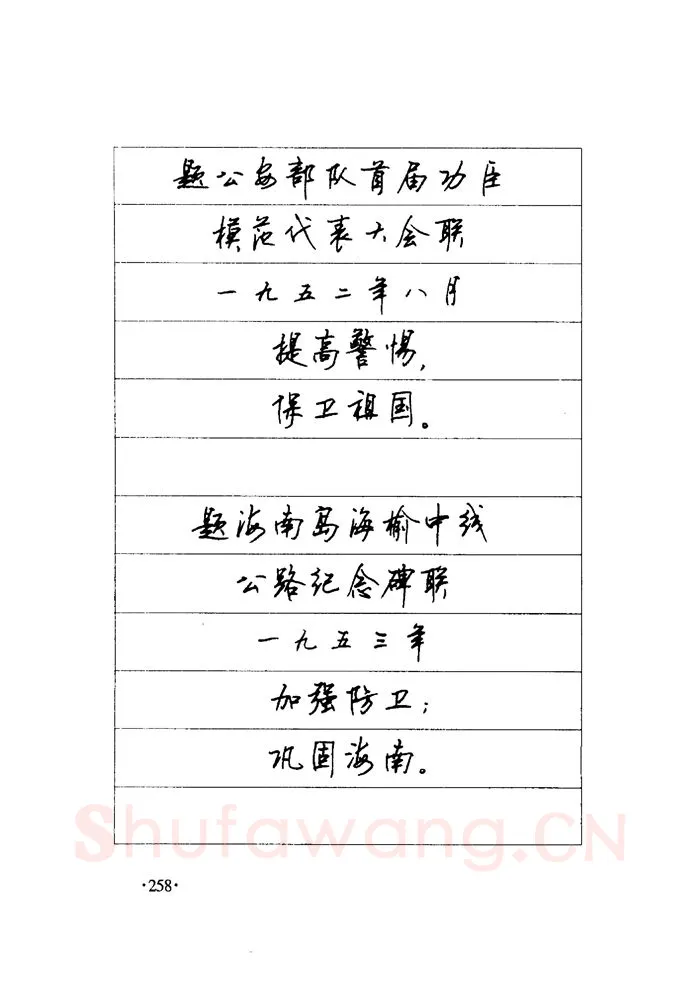 题公安部队首届功臣
模范代表大会联
一九五二年八月
提高警惕,
保卫祖国。
题海南岛海榆中线
公路纪念碑联
一九五三年
加强防卫;
巩固海南。
Shufawang.CN
·258·